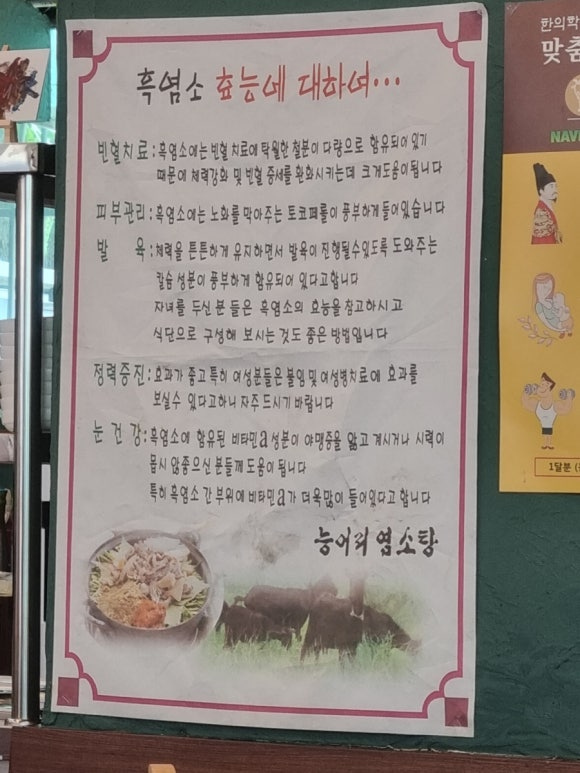 흑염소 효능에 대하여…
빈혈치료: 흑염소에는 빈혈 치료에 탁월한 철분이 다량으로 함유되어 있기
때문에 체력강화 및 빈혈 증세를 완화시키는데 크게도움이됩니다
피부관리: 흑염소에는 노화를 막아주는 토코페롤이 풍부하게들어있습니다
발 육: 체력을 튼튼하게 유지하면서 발육이 진행될수있도록 도와주는
칼슘 성분이 풍부하게 함유되어 있다고합니다
자녀를 두신 분 들은 흑염소의 효능을 참고하시 고
식단으로 구성해 보시는 것도 좋은 방법입니다
정력증진: 효과가 좋고 특히 여성분들은 불임 및 여성병치료에 효과를
보실수 있다고하니 자주 드시기 바랍니다
눈 건 강: 흑염소에 함유된 비타민a성분이 야맹증을 앓고 계시거나 시력이
몹시 않좋으신 분들께 도움이 됩니다
특히 흑염소 간 부위에 비타민a가 더욱많이 들어있다고 합니다
능이위 염소탕
한의학
맞춤
NAVE
1달분